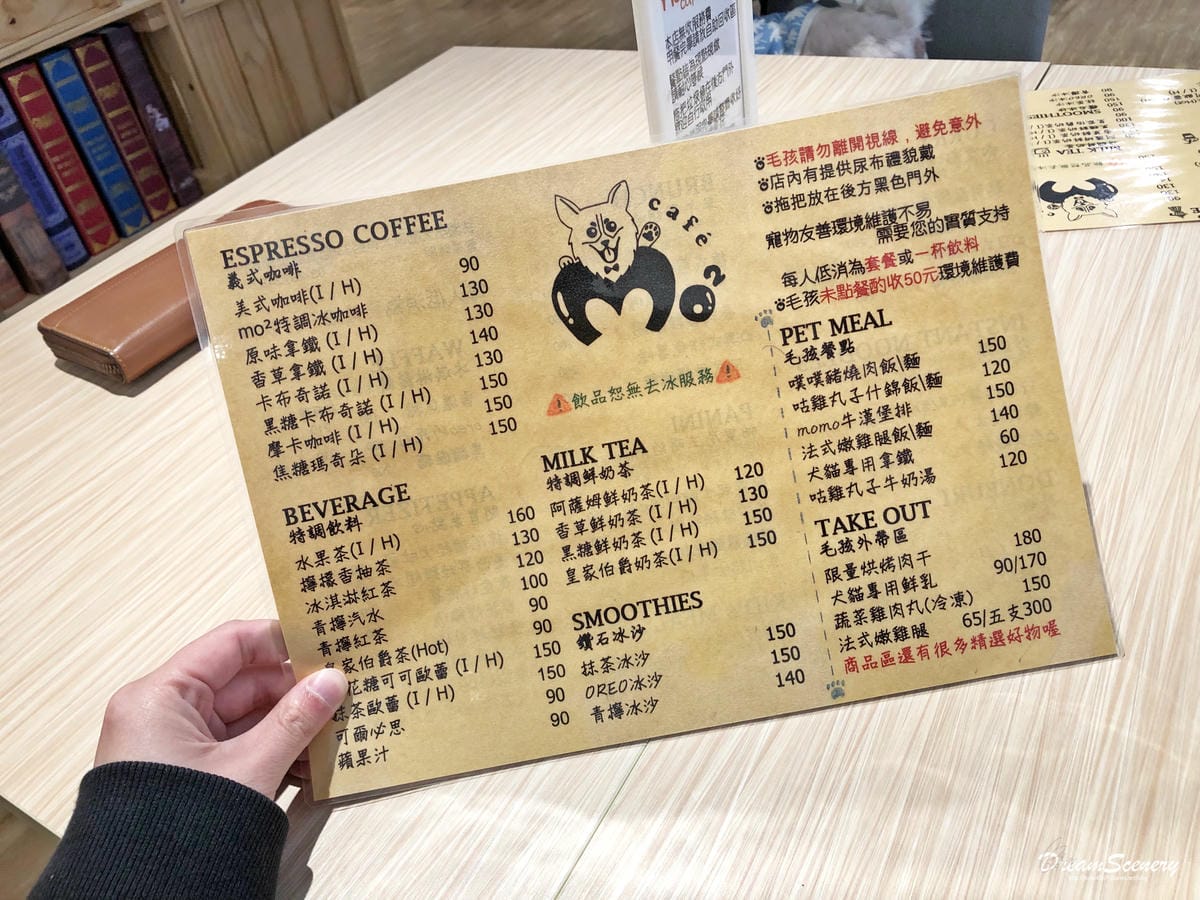 ESPRESSO COFFEE
義式咖啡
美式咖啡(I / H) 90
mo²特調冰咖啡 130
原味拿鐵 (I / H) 130
香草拿鐵 (I / H) 140
卡布奇諾 (I / H) 130
黑糖卡布奇諾 (I / H) 150
摩卡咖啡 (I / H) 150
焦糖瑪奇朵 (I / H) 150
BEVERAGE
特調飲料
水果茶(I / H) 160
檸檬香柚茶 130
冰淇淋紅茶 120
青檸汽水 100
青檸紅茶 90
皇家伯爵茶(Hot) 90
花糖可可歐蕾 (I / H) 150
抹茶歐蕾 (I / H) 150
可爾必思 90
蘋果汁 90
café
mo2
飲品恕無去冰服務
MILK TEA
特調鮮奶茶
阿薩姆鮮奶茶(I / H) 120
香草鮮奶茶 (I / H) 130
黑糖鮮奶茶 (I / H) 150
皇家伯爵奶茶(I / H) 150
SMOOTHIES
鑽石冰沙
抹茶冰沙 150
OREO冰沙 150
青檸冰沙 140
毛孩請勿離開視線，避免意外
店內有提供尿布禮貌戴
拖把放在後方黑色門外
寵物友善環境維護不易
需要您的實質支持
每人低消為套餐或一杯飲料
毛孩未點餐酌收50元環境維護費
PET MEAL
毛孩餐點
噗噗豬燒肉飯\麵 150
咕雞丸子什錦飯\麵 120
momo牛漢堡排 150
法式嫩雞腿飯\麵 140
犬貓專用拿鐵 60
咕雞丸子牛奶湯 120
TAKE OUT
毛孩外帶區
限量烘烤肉干 180
犬貓專用鮮乳 90/170
蔬菜雞肉丸(冷凍) 150
法式嫩雞腿 65/五支300
商品區還有很多精選好物喔
本店無收服務費
用餐完畢請放自助回收區
SMOOTHIES
MILK TEA
DreamScenery